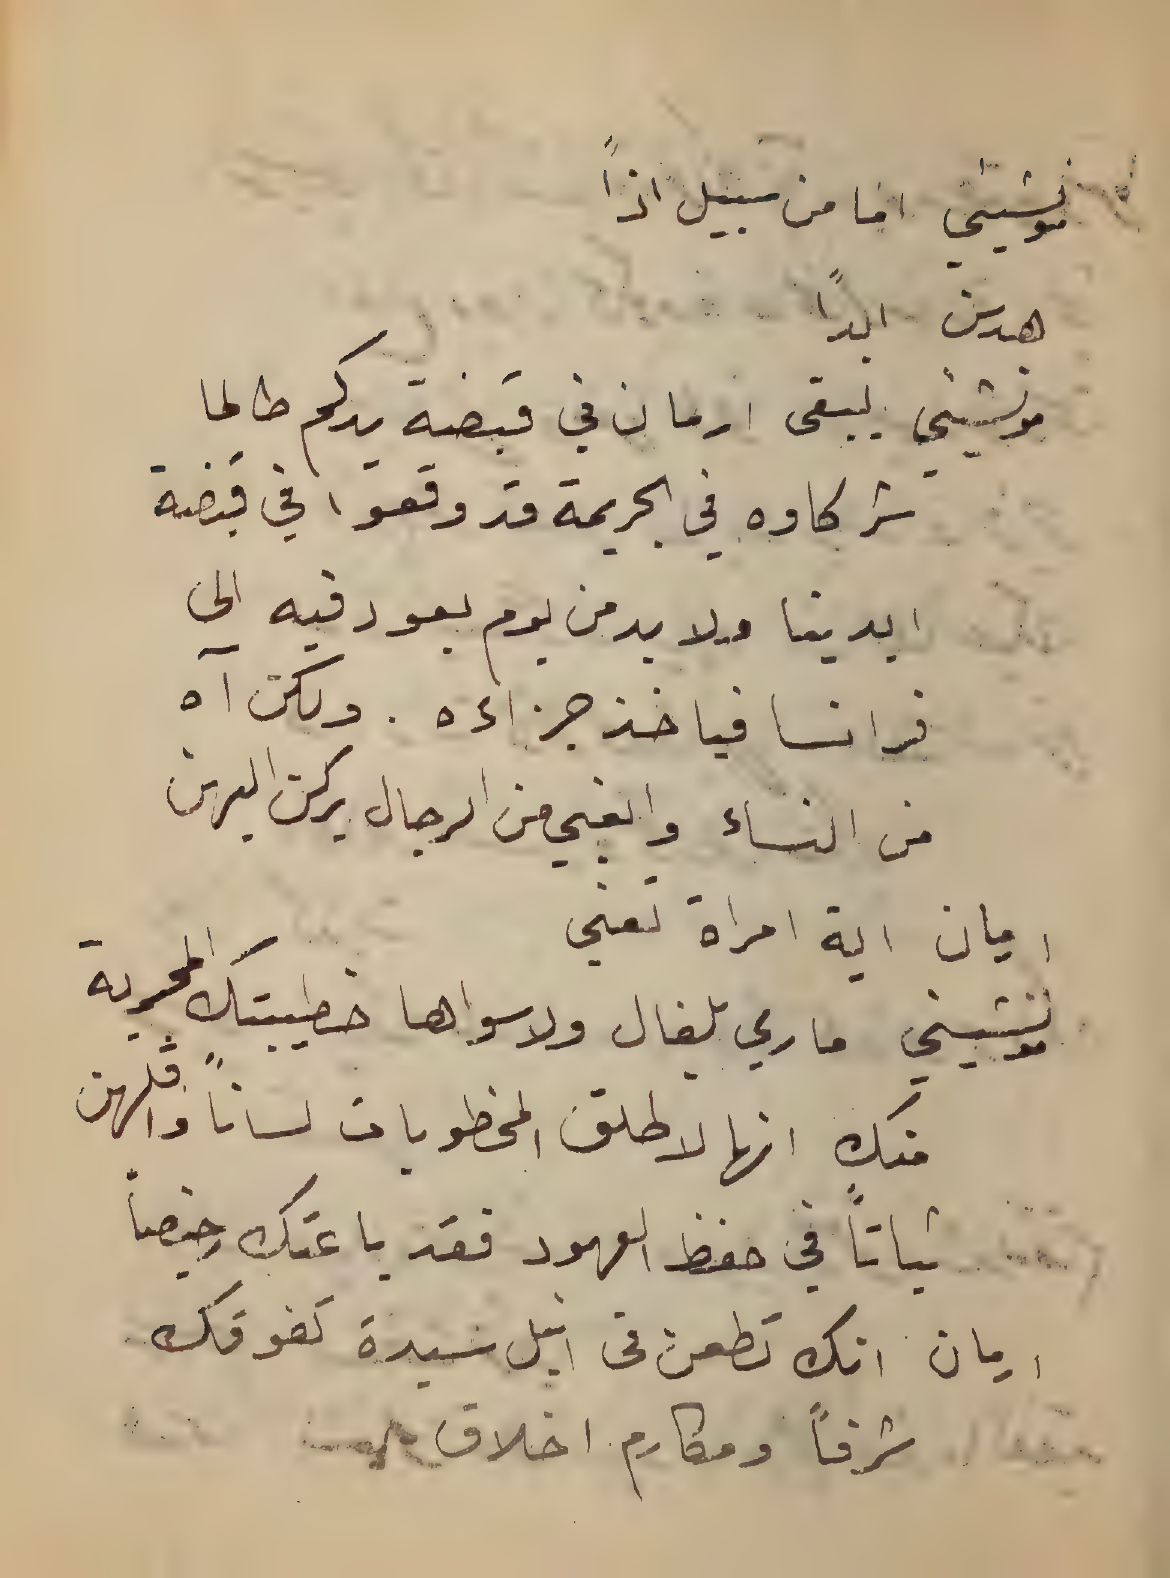 مونشيني اما من سبيل اذاً
هدسن ابداً
مونشيني ليبقى ارمان في قبضة يدكم طالما
شركاوه في الجريمة قد وقعوا في قبضة
ايدينا ولا بد من يوم يعود فيه الى
فرانسا فياخذ جزاءه . ولكن آه
من النساء والغبي من الرجال يركن اليهن
ارمان اية امراة تعني
مونشيني ماري بلفال ولا سواها خطيبتك المحبوبة
منك انها لاطلق المخطوبات لساناً واقلهن
ثباتاً في حفظ العهود فقد باعتك رخيصاً
ارمان انك تطعن في انبل سيدة تفوقك
شرفاً ومكارم اخلاق